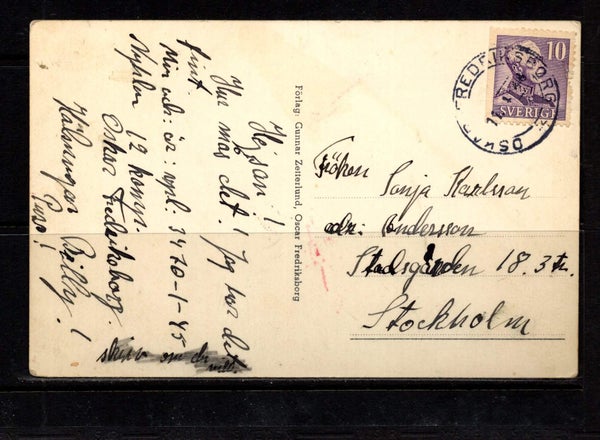 Hejsan!
Hur mås det! Jag har det
fint.
Min adr: är: npl. 3470-1-45
Nyplm 12 komp.
Oskar Fredriksborg.
Hälsningar Billy!
Puss!
skriv om du vill.
Förlag: Gunnar Zetterlund, Oscar Fredriksborg
10
SVERIGE
OSKAR-FREDRIKSBORG
Fröken Sonja Karlsson
adr: Andersson
Stadsgården 18. 3 tr.
Stockholm